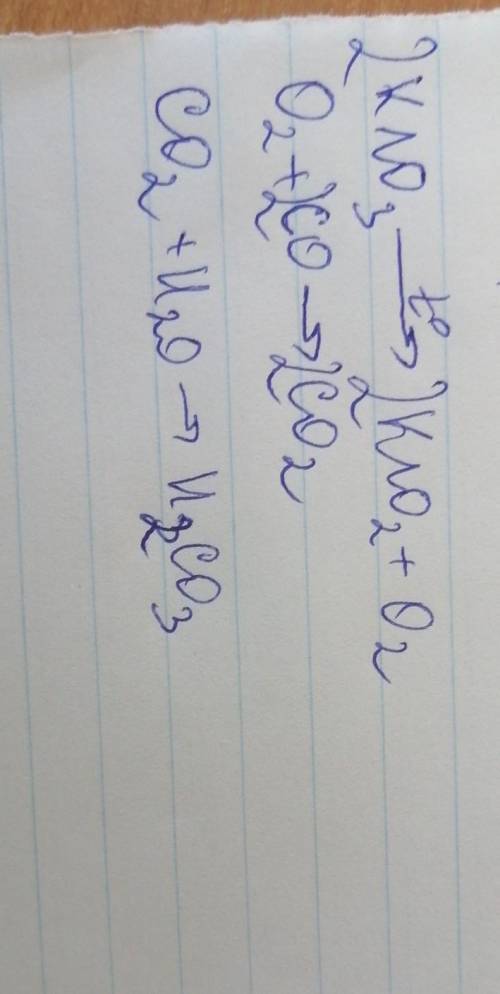 2KNO₃ —t°→ 2KNO₂ + O₂
O₂ + 2CO → 2CO₂
CO₂ + H₂O → H₂CO₃